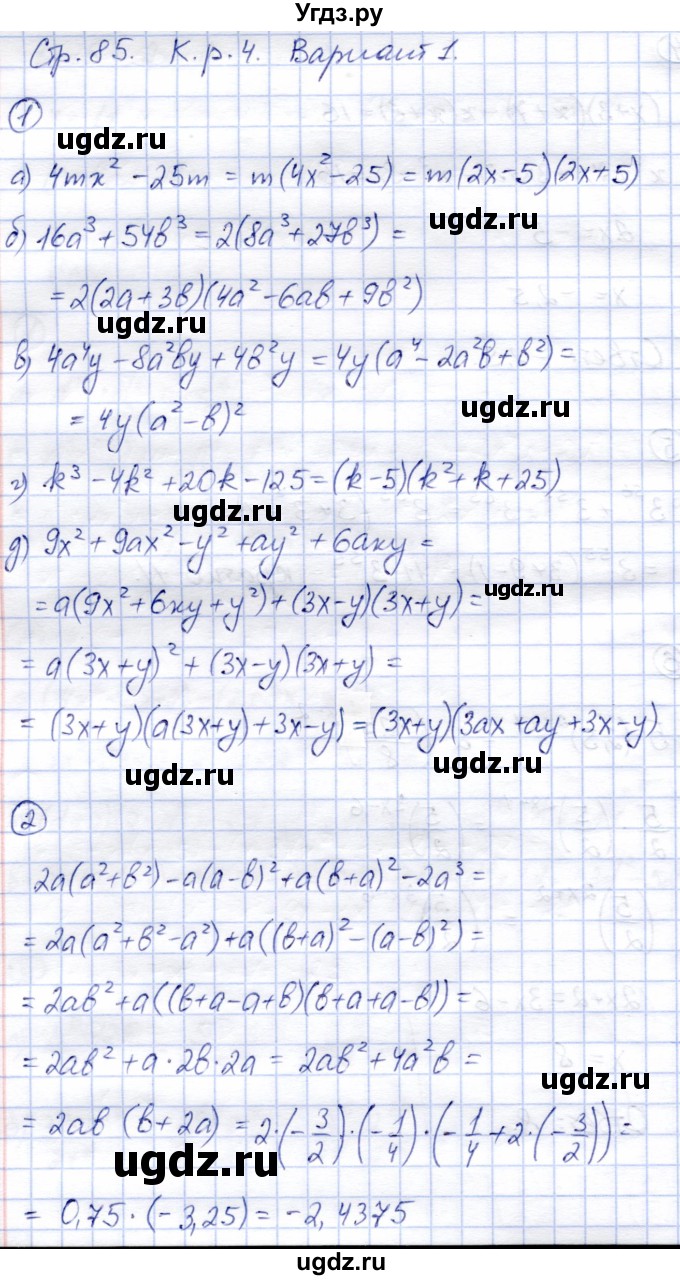 Угдз.ру
Стр. 85. К.р. 4. Вариант 1.
1
ugdz.ru
а) 4mx² - 25m = m(4x² - 25) = m(2x-5)(2x+5)
ugdz.ru
б) 16a³ + 54в³ = 2(8a³ + 27в³) =
= 2(2a+3в)(4a² - 6aв + 9в²)
ugdz.ru
в) 4a⁴y - 8a²вy + 4в²y = 4y(a⁴ - 2a²в + в²) =
ugdz.ru
= 4y(a² - в)²
г) k³ - 4k² + 20k - 125 = (k-5)(k² + k + 25)
ugdz.ru
д) 9x² + 9ax² - y² + ay² + 6axy =
ugdz.ru
= a(9x² + 6xy + y²) + (3x-y)(3x+y) =
= a(3x+y)² + (3x-y)(3x+y) =
= (3x+y)(a(3x+y) + 3x-y) = (3x+y)(3ax + ay + 3x - y)
ugdz.ru ugdz.ru
2
2a(a²+в²) - a(a-в)² + a(в+a)² - 2a³ =
ugdz.ru
= 2a(a²+в²-a²) + a((в+a)² - (a-в)²) =
= 2aв² + a((в+a-a+в)(в+a+a-в)) =
= 2aв² + a·2в·2a = 2aв² + 4a²в =
ugdz.ru
= 2aв (в+2a) = 2·(-3/2)·(-1/4)·(-1/4 + 2·(-3/2)) =
ugdz.ru
= 0,75·(-3,25) = -2,4375
ugdz.ru